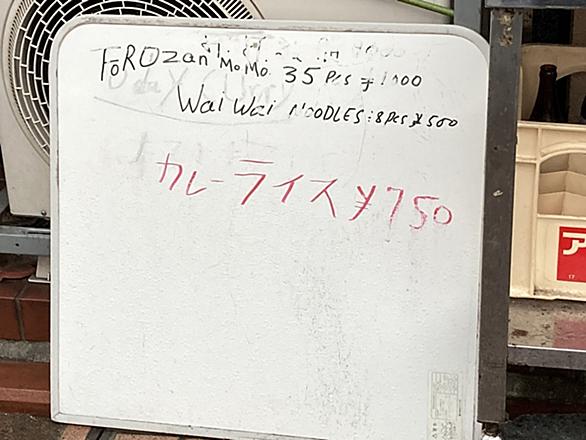 FoROzan MoMo 35 Pcs ¥1000
Wai Wai NOODLES:8Pcs ¥500
カレーライス ¥750
ア
17